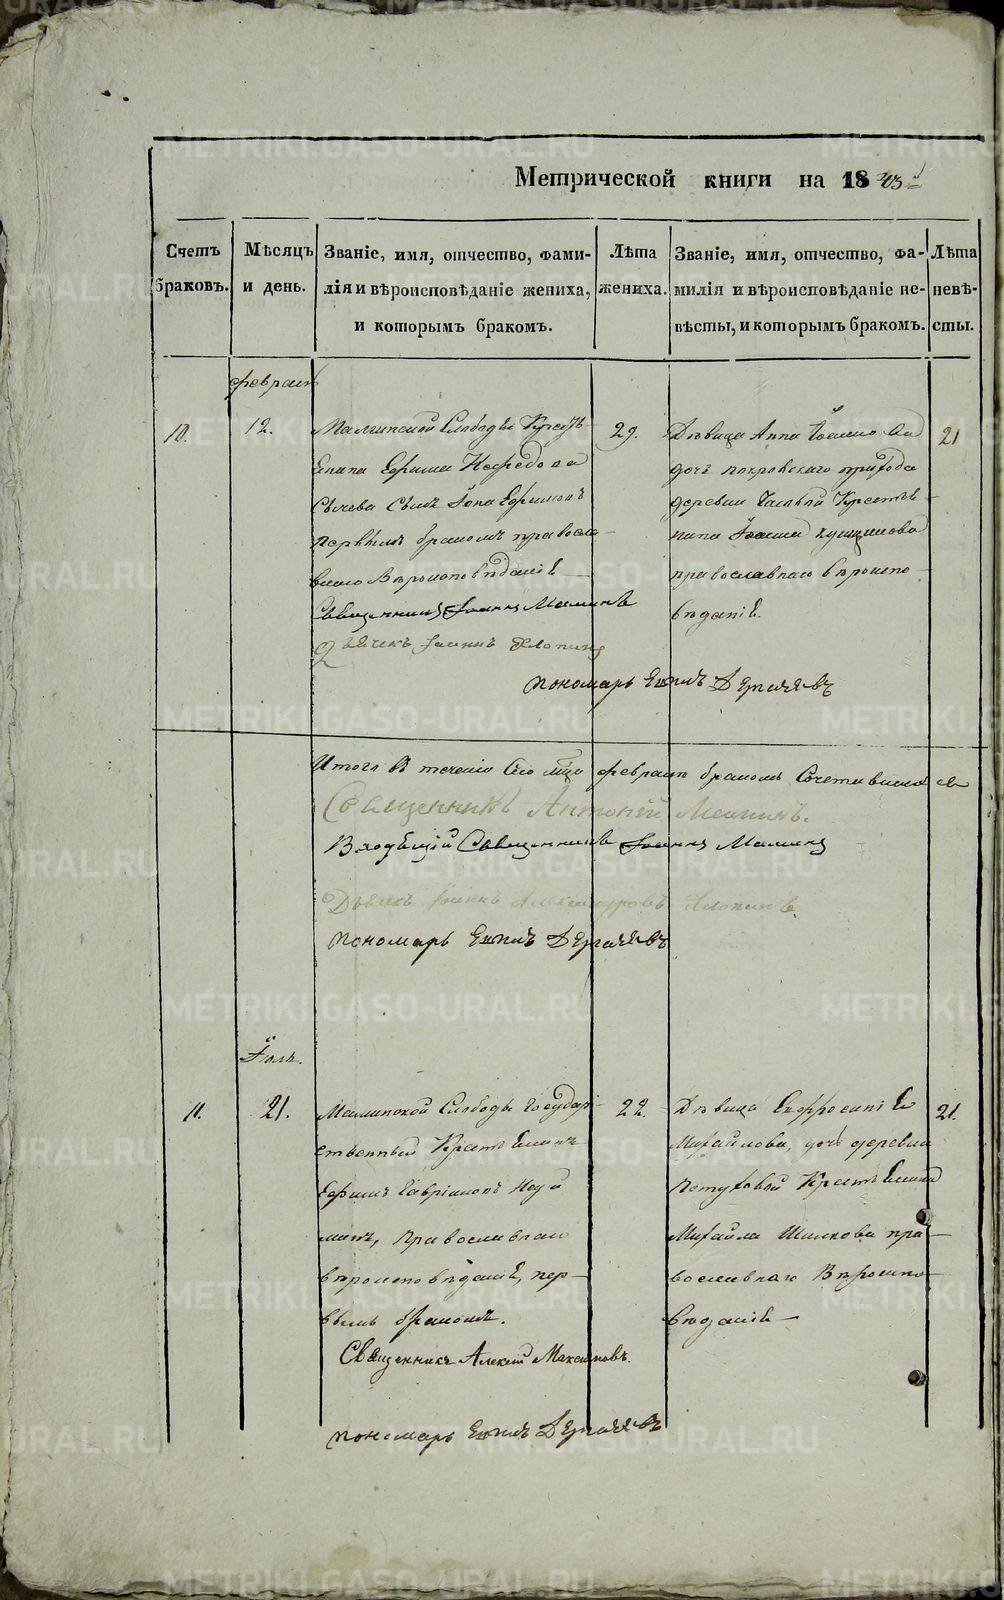 Метрической книги на 1843й
Счетъ браковъ.
Мѣсяцъ и день.
Званіе, имя, отчество, фами-
лія и вѣроисповѣданіе жениха,
и которымъ бракомъ.
Лѣта жениха.
Званіе, имя, отчество, фа-
милія и вѣроисповѣданіе не-
вѣсты, и которымъ бракомъ.
Лѣта невѣ-
сты.
февраль
10.
12.
Маминской Слободы Крестья
Ефима
Сынъ Іона Ефимовъ
первымъ бракомъ православ
Вѣроисповѣданіе
Священникъ Іоаннъ Маминъ
Дьячекъ Іоаннъ Хлопинъ
пономарь Дергачевъ
29.
Дѣвица Анна
дочь покровскаго прихода
деревни Крестья
нина
православнаго вѣроиспо
вѣданіе.
21
Итого въ теченіи Сего мца февраля бракомъ
Священникъ Антоній Маминъ.
Входящій Священникъ Іоаннъ Маминъ
Дьячекъ Іоаннъ Александровъ Хлопинъ.
пономарь Дергачевъ
Іюль.
11.
21.
Маминской Слободы Государ
ственный Крестьянинъ
Ефимъ Гавриловъ Нау
мовъ, Православнаго
вѣроисповѣданіе, пер-
вымъ бракомъ.
Священникъ Алексей Максимовъ.
пономарь Дергачевъ
22.
Дѣвица Евфросинія
Михайлова, дочь деревни
Петуховой Крестьянина
Михайла Шилкова пра-
вославнаго Вѣроиспо-
вѣданіе
21.
METRIKI.GASO-URAL.RU